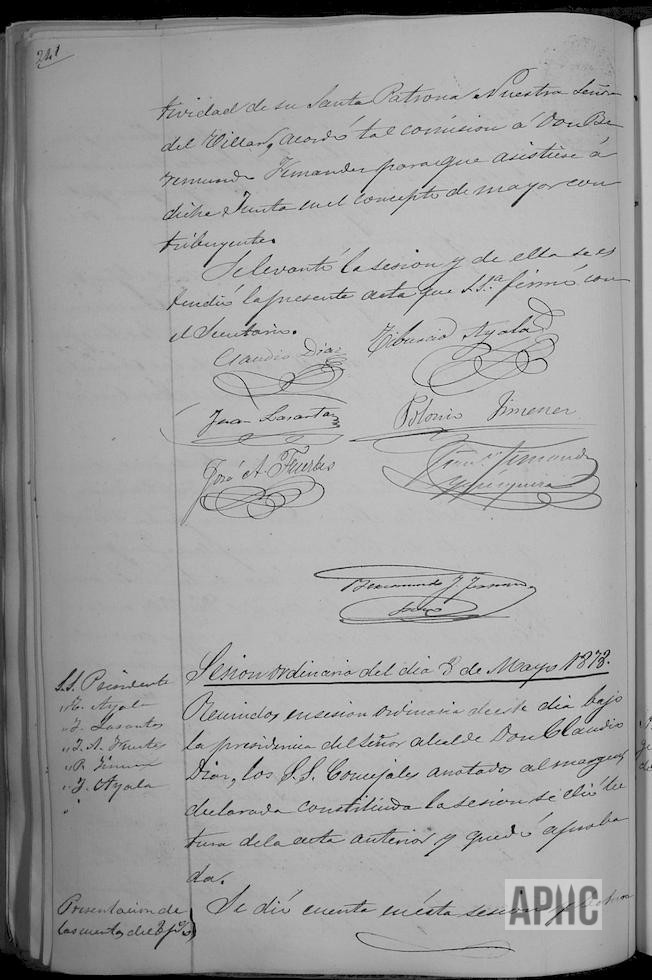 241
tividad de su Santa Patrona Nuestra Señora
del Villar, acordó tal comision á Don Be
remundo Fernandez para que asistiese á
dicha Junta en el concepto de mayor con
tribuyente.
Se levantó la sesion y de ella se es
tendió la presente acta que S.S.ª firmó con
el Secretario.
Claudio Diaz
Tiburcio Ayala
Juan Lasanta
Polonio Jimenez
José A. Fuertes
Beremundo
Sesion ordinaria del dia 3 de Mayo 1878.
S.S. Presidente
" T. Ayala
" J. Lasanta
" J. A. Fuertes
" P. Jimenez
" J. Ayala
"
Reunidos en sesion ordinaria de este dia bajo
la presidencia del Señor alcalde Don Claudio
Diaz, los S.S. Concejales anotados al margen,
declarada constituida la sesion se dió lec
tura de la acta anterior y quedó aproba
da.
Presentacion de
las cuentas del
Se dió cuenta en ésta sesion
APHC